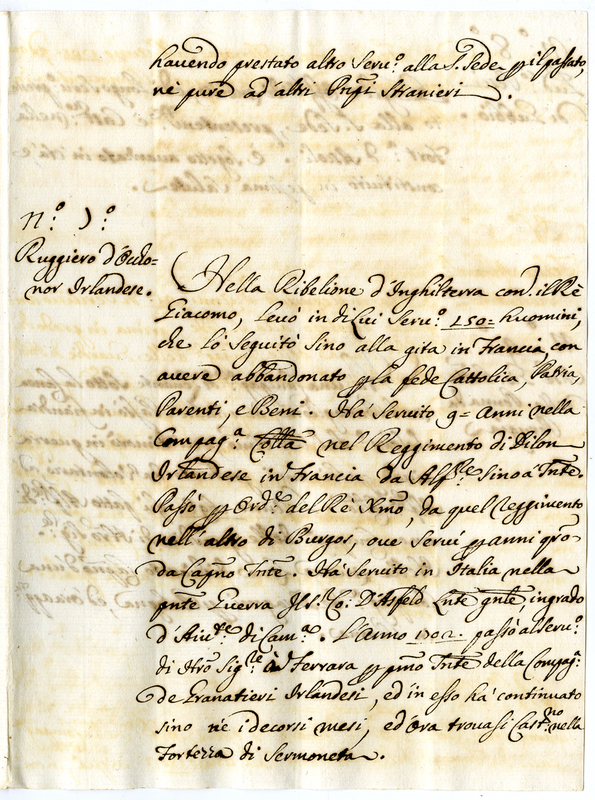 hauendo prestato altro Seru.º alla S. Sede p il passato,
ne pure ad altri Prpi Stranieri.
N.º 5.º
Ruggiero d'Occo=
nor Irlandese.
Nella Ribelione d'Inghilterra con. il Rè
Giacomo, leuò in di lui Seru.º 150= huomini,
che lo seguitò sino alla gita in Francia, con
auere abbandonato p la fede Cattolica, Patria,
Parenti, e Beni. Hà Seruito 9= Anni nella
Compag.ª nel Reggimento di Dilon
Irlandese in Francia da Alf.re sino à Tnte.
Passò p Ord.e del Rè Xmo, da quel reggimento
nell'altro di Burgos, oue Seruì p anni qro
da Capno Tnte. Hà Seruito in Italia nella
pnte Guerra Ill. Co: D'Asfeld Lnte gnte, in grado
d'Aiut.e di Cam.ª. L'Anno 1702. passò al seru.º
di Nro Sig.re à Ferrara p pmo Tnte della Compag.ª
de Granatieri Irlandesi, ed in esso hà continuato
sino ne i decorsi mesi, ed ora trouasi Cast.no nella
Fortezza di Sermoneta.